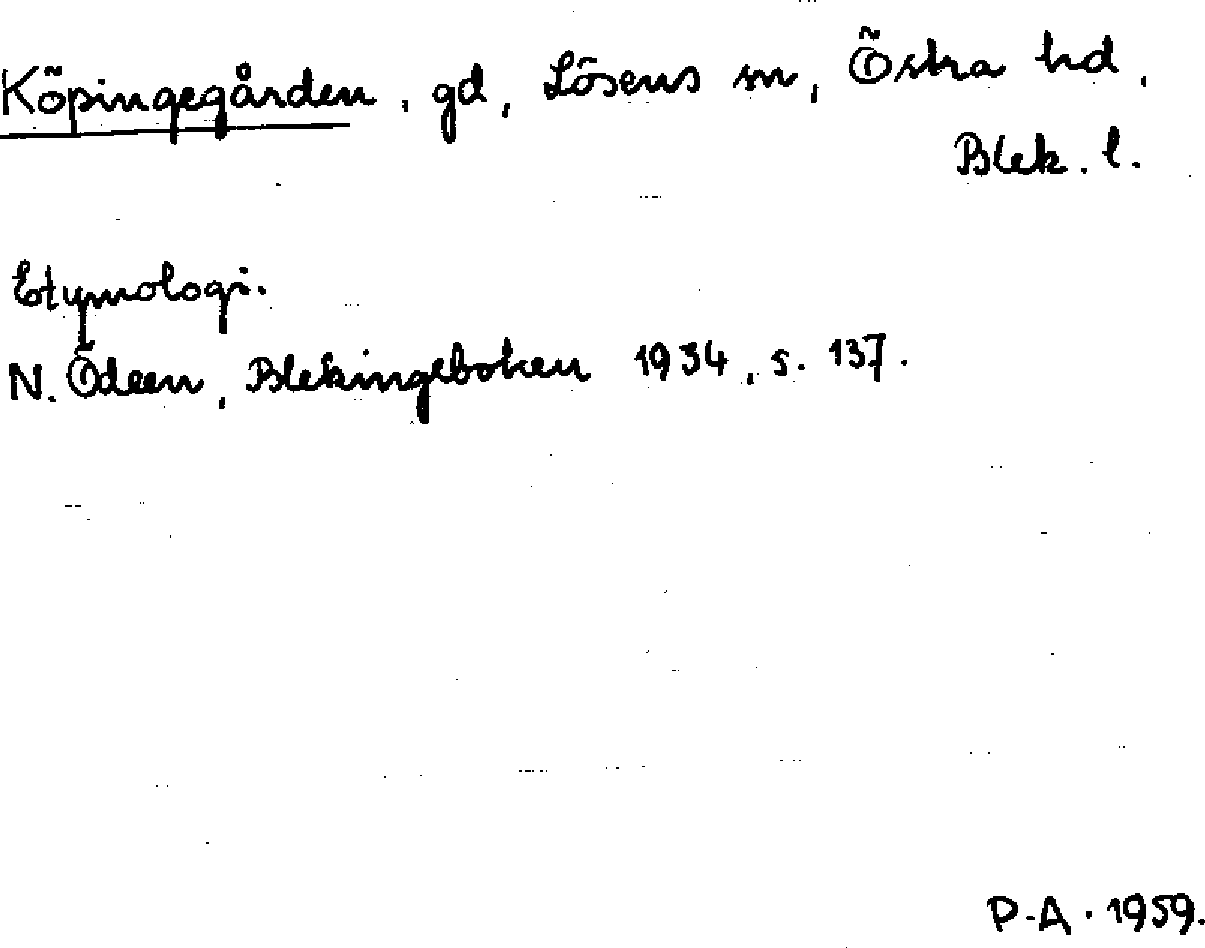 Köpingegården, gd, Lösens sn, Östra hd,
Blek. l.
Etymologi.
N. Ödeen, Blekingeboken 1934, s. 137.
P-A. 1959.